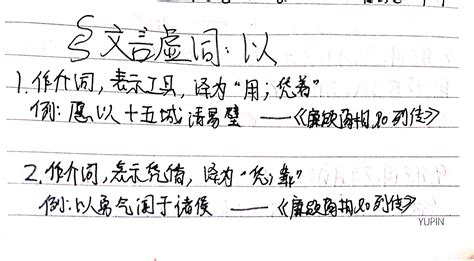 § 文言虚词:以
1.作介词,表示工具,译为"用;凭着"
例:愿以十五城请易璧 ——《廉颇蔺相如列传》
2.作介词,表示凭借,译为"凭;靠"
例:以勇气闻于诸侯 ——《廉颇蔺相如列传》
YUPIN